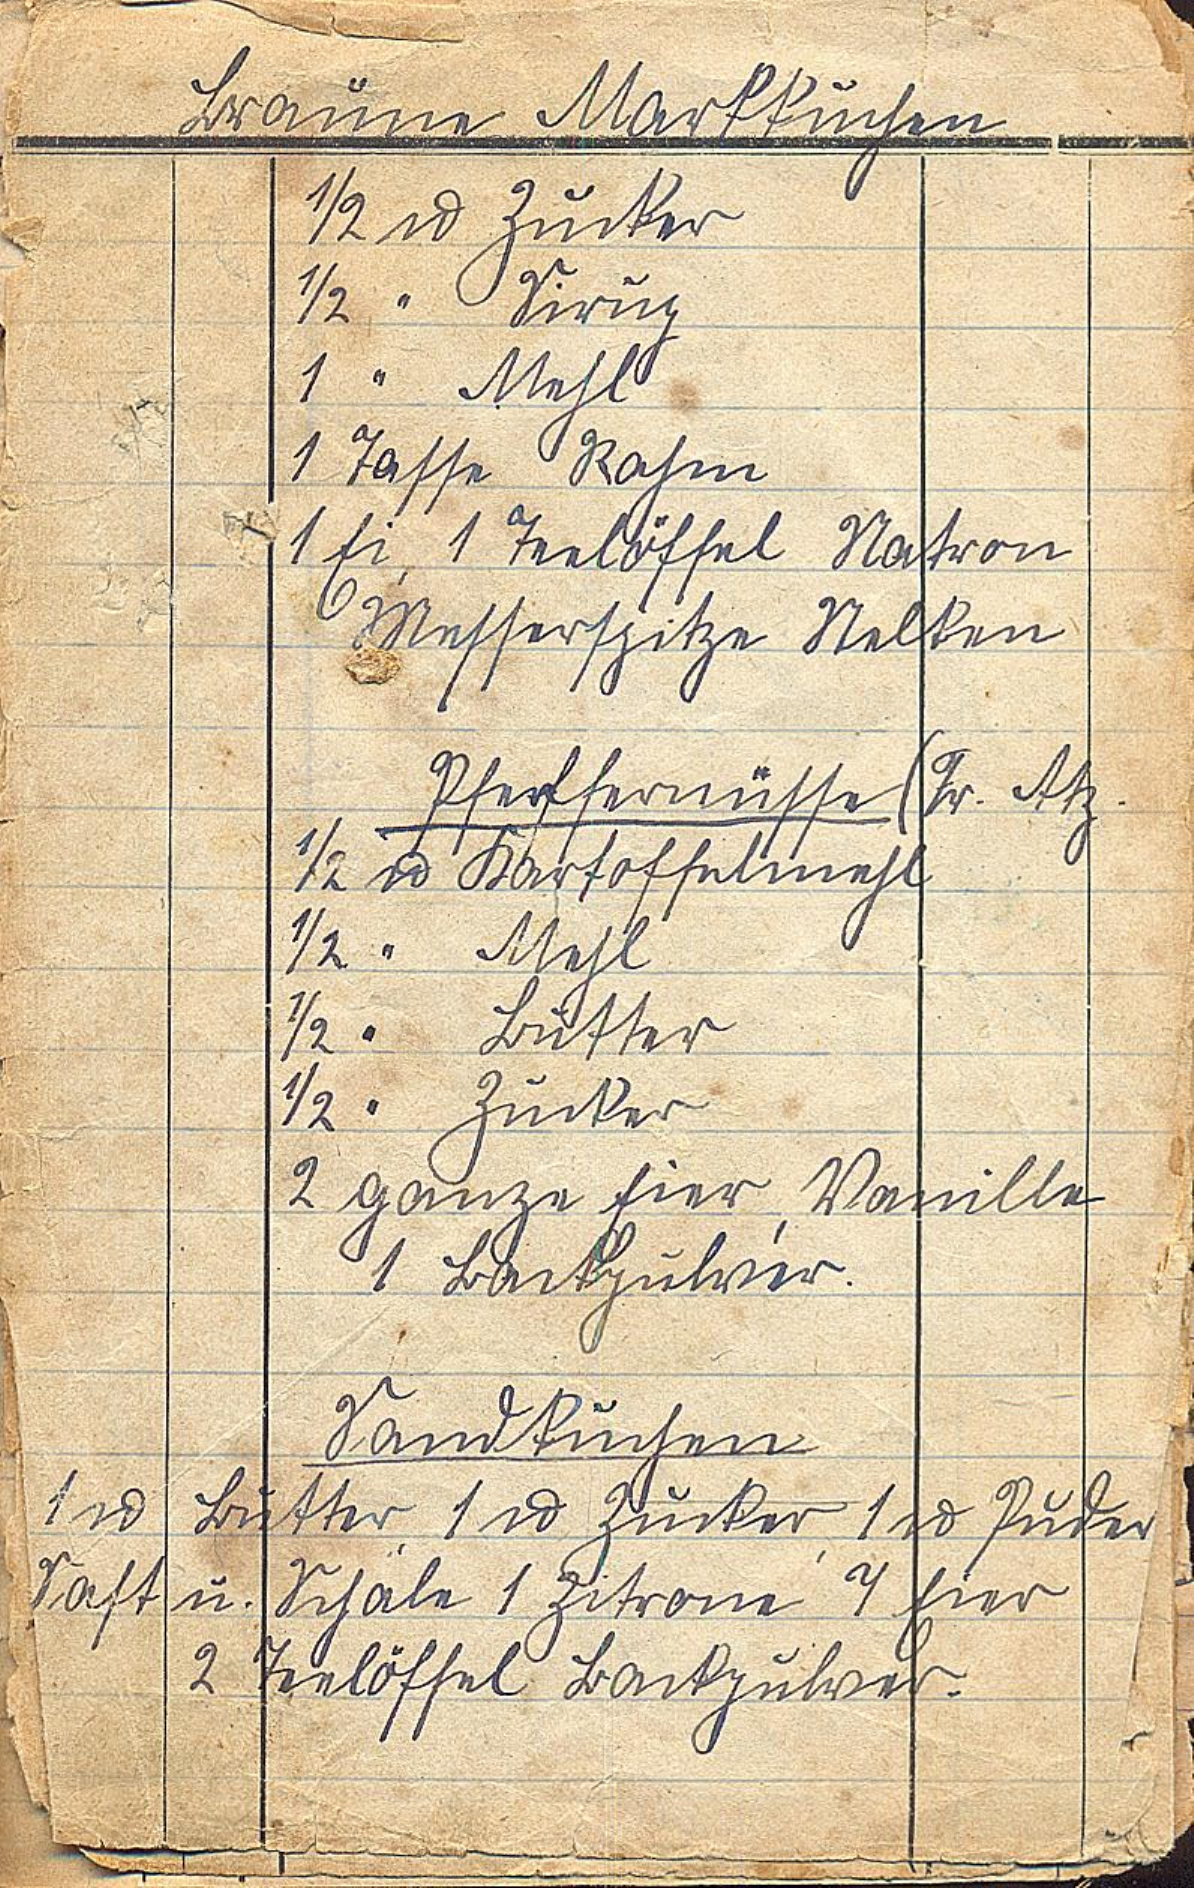 Braune Marktkuchen
1/2 ℔ Zucker
1/2 " Sirup
1 " Mehl
1 Tasse Rahm
1 Ei, 1 Teelöffel Natron
Messerspitze Nelken
Pfeffernüsse (Fr.
1/2 ℔ Kartoffelmehl
1/2 " Mehl
1/2 " Butter
1/2 " Zucker
2 ganze Eier, Vanille
1 Backpulver.
Sandkuchen
1 ℔ Butter, 1 ℔ Zucker, 1 ℔ Puder
Saft u. Schale 1 Zitrone 7 Eier
2 Teelöffel Backpulver.